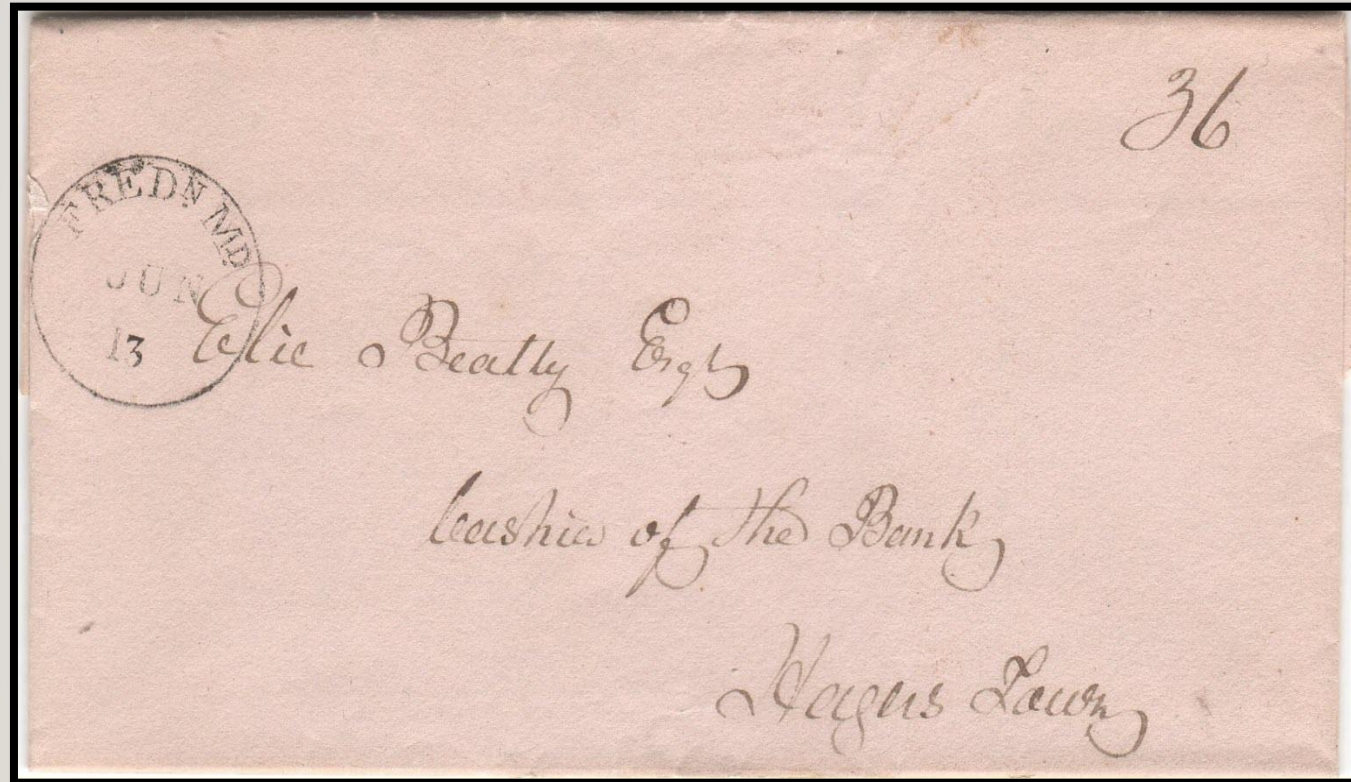 36
FREDK MD
JUN
13
Elie Beatty Esqr
Cashier of the Bank
Hagers Town